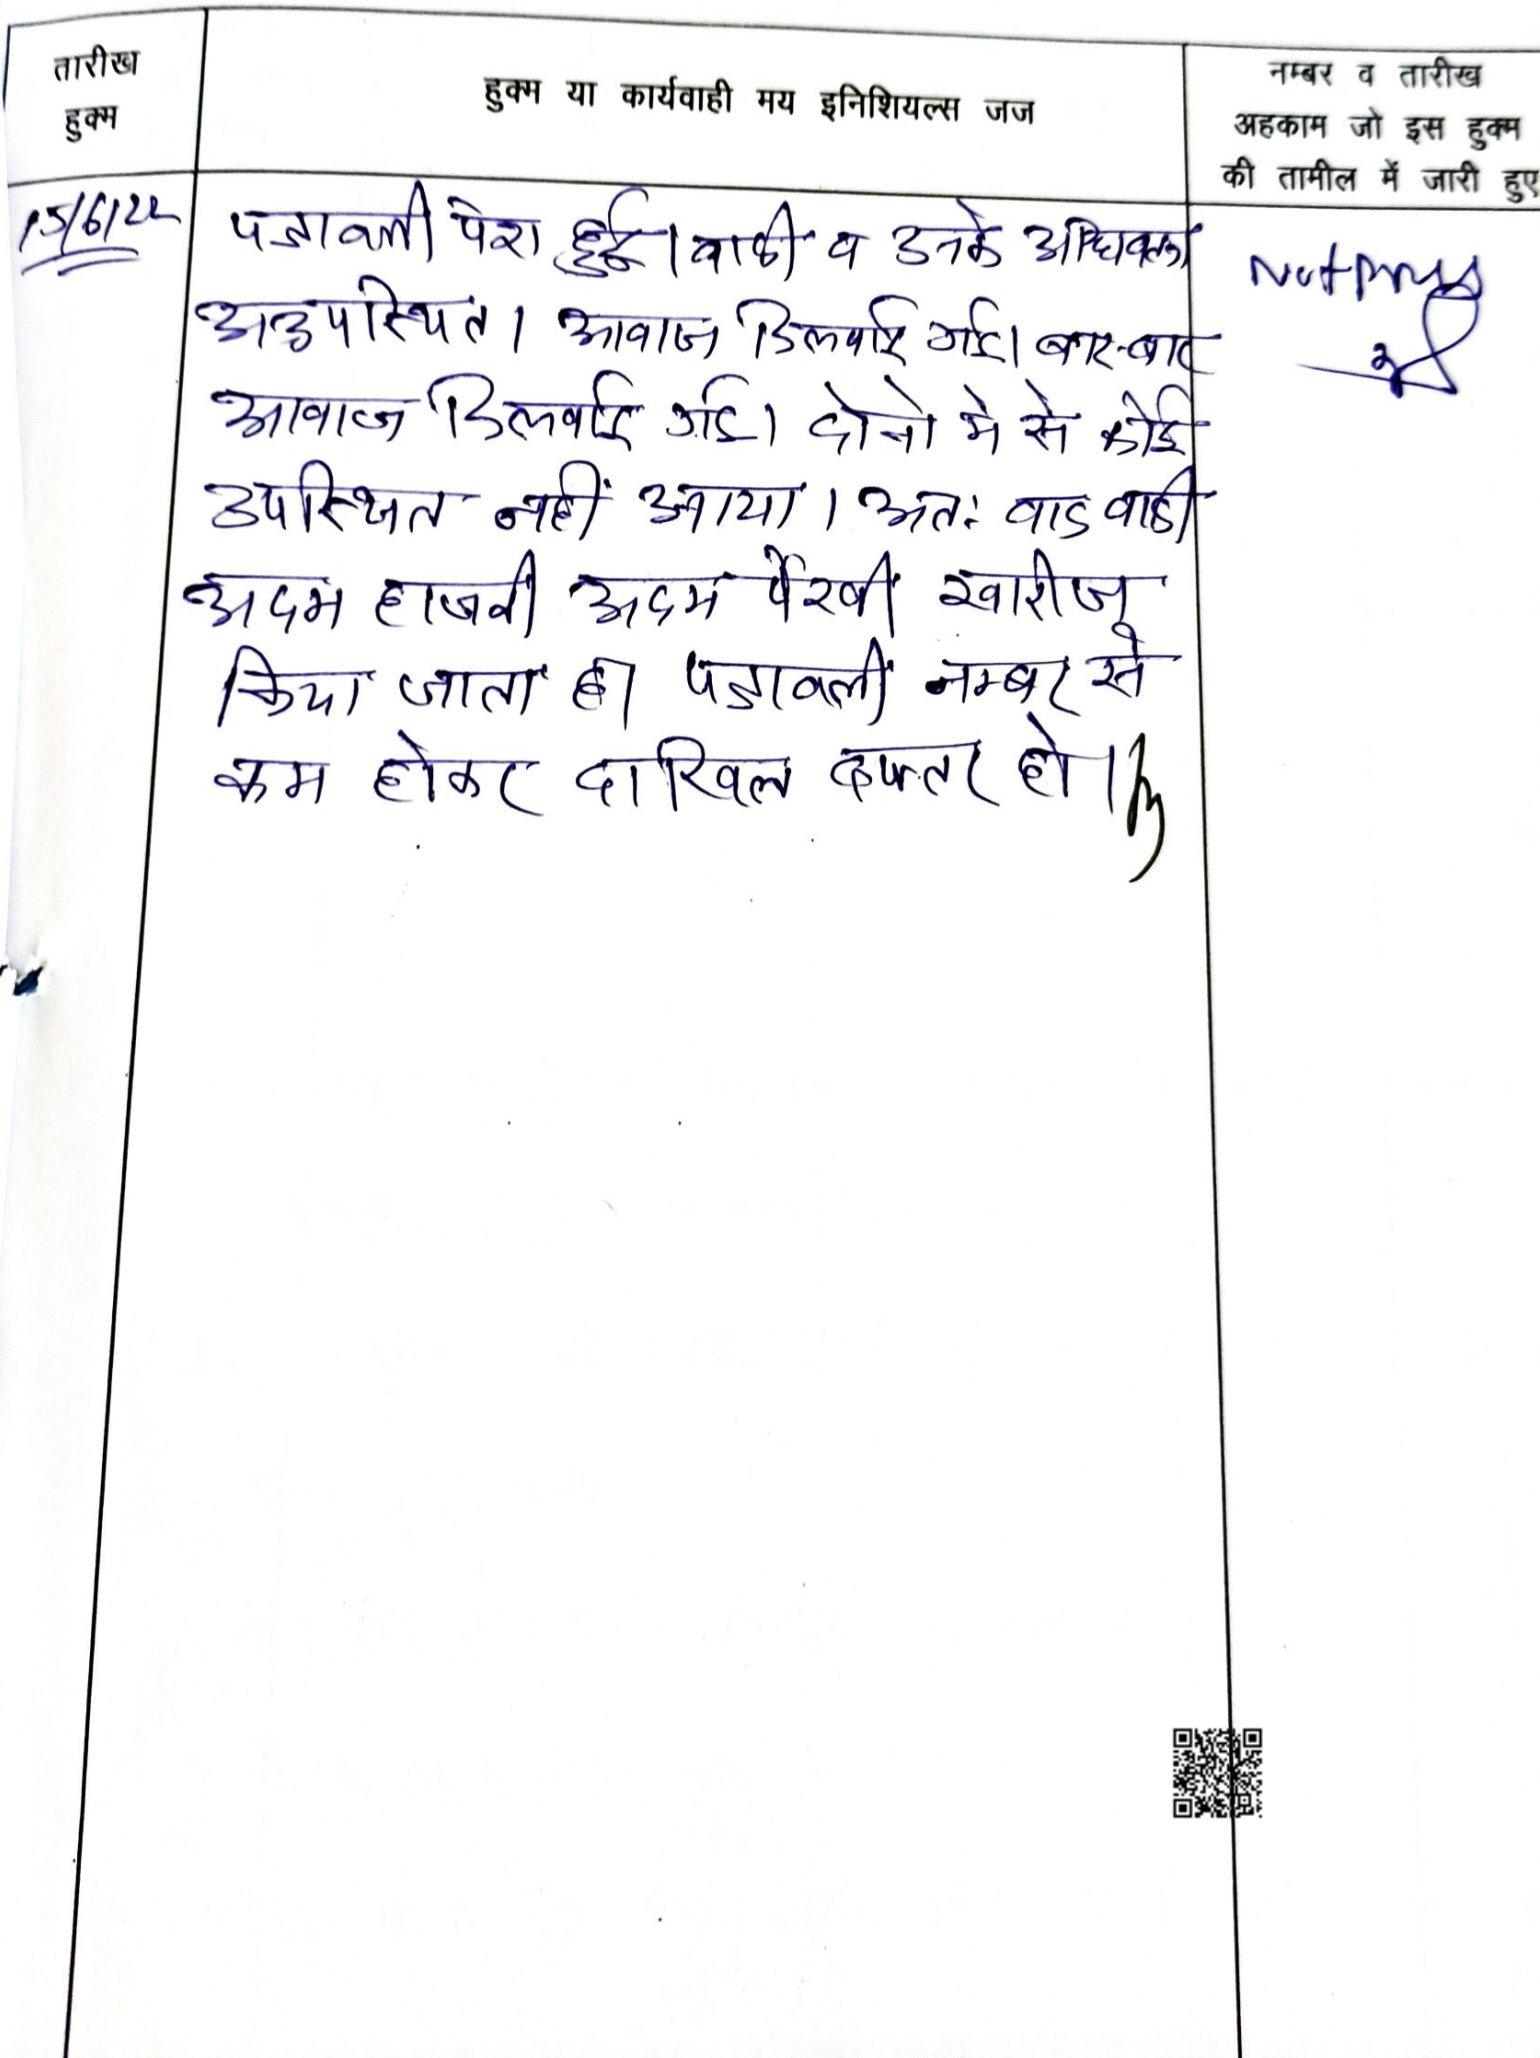 तारीख
हुक्म
हुक्म या कार्यवाही मय इनिशियल्स जज
नम्बर व तारीख
अहकाम जो इस हुक्म
की तामील में जारी हुए
15/6/22
पत्रावली पेश हुई। वादी व उनके अधिवक्ता
अनुपस्थित। आवाज दिलवाई गई। बार-बार
आवाज दिलवाई गई। दोनो मे से कोई
उपस्थित नहीं आया। अतः वाद वादी
अदम हाजरी अदम पैरवी खारीज
किया जाता है। पत्रावली नम्बर से
कम होकर दाखिल दफ्तर हो।
Not press